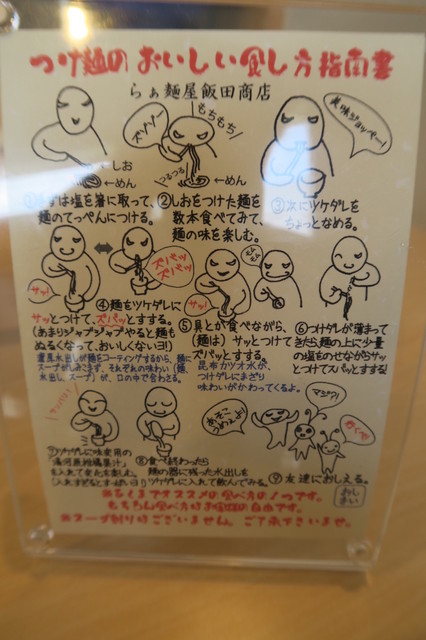 つけ麺のおいしい食し方指南書
らぁ麺屋飯田商店
ゾゾゾー
もちもち
つるつる
←しお
←めん
←めん
美味ジョッペー!
①まずは塩を箸に取って、
麺のてっぺんにつける。
②しおをつけた麺を
数本食べてみて、
麺の味を楽しむ。
③次にツケダレを
ちょっとなめる。
サッ!
ズバッ
ズバッ
④麺をツケダレに
サッとつけて、ズバッとすする。
(あまりジャブジャブやると麺も
ぬるくなって、おいしくないヨ!)
サッ!
⑤具とか食べながら、
(麺は)サッとつけて
ズバッとすする。
昆布カツオ水が、
つけダレにまざり
味わいがかわってくるよ。
⑥つけダレが薄まって
きたら麺の上に少量
の塩をのせながらサッ
とつけてズバッとすする!
を入れて
⑧食べ終わったら
麺の器に残った水出しを
ツケダレに入れて飲んでみる。
あそこ
うめぇよ!
マジっ?
⑨友達におしえる。
おし
まい
※あくまでオススメの食べ方の1つです。
もちろん食べ方はお客様の自由です。
※スープ割りはございません。ご了承下さいませ。